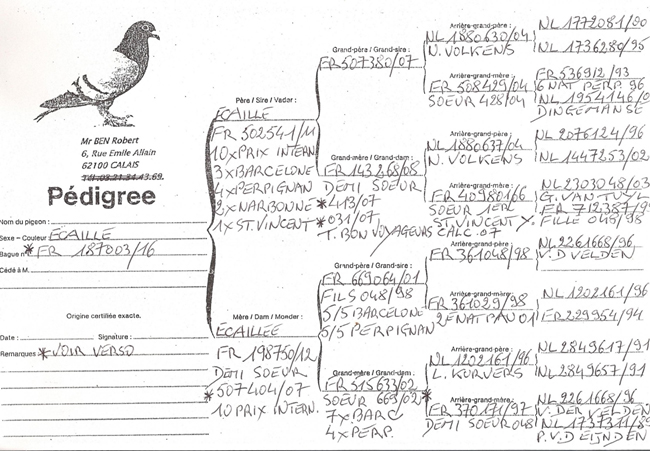 Mr BEN Robert
6, Rue Emile Allain
62100 CALAIS
Tél. 03.21.34.43.69.
Pédigree
Nom du pigeon :
Sexe – Couleur ECAILLE
Bague n° * FR 187003/16
Cédé à M.
Origine certifiée exacte.
Date : Signature :
Remarques * VOIR VERSO
Père / Sire / Vader :
ECAILLE
FR 502541/11
10 x PRIX INTERN.
3 x BARCELONE
4 x PERPIGNAN
2 x NARBONNE
1 x ST. VINCENT
Mère / Dam / Moeder :
ECAILLEE
FR 198750/12
DEMI SOEUR
* 507404/07
10 PRIX INTERN.
Grand-père / Grand-sire :
FR 507380/07
Grand-mère / Grand-dam :
FR 143268/68
DEMI SOEUR
* 413/07
* 031/07
T. BON VOYAGEURS CALC. 07
Grand-père / Grand-sire :
FR 669064/01
FILS 048/98
5/5 BARCELONE
6/5 PERPIGNAN
Grand-mère / Grand-dam :
FR 515633/02
SOEUR 663/02 *
7 x BARC
4 x PERP.
Arrière-grand-père :
NL 1880630/04
N. VOLKENS
Arrière-grand-mère :
FR 508429/04
SOEUR 428/04
Arrière-grand-père :
NL 1880637/04
N. VOLKENS
Arrière-grand-mère :
FR 409804/66
SOEUR 1ER
ST. VINCENT
Arrière-grand-père
FR 361048/98
Arrière-grand-mère :
FR 361029/98
2E NAT PAU 01
Arrière-grand-père :
NL 1202161/96
L. KURVERS
Arrière-grand-mère :
FR 370171/97
DEMI SOEUR 048
NL 1772081/90
NL 1736280/95
FR 536912/93
6 NAT PERP. 96
NL 1954146/0
DINGEMANSE
NL 2076124/96
NL 1447253/02
NL 2303048/03
G. VAN TUYL
FR 712387/9
FILLE 045/98
NL 2261668/96
V. D VELDEN
NL 1202161/96
FR 229954/94
NL 2849617/91
NL 2849657/91
NL 2261668/96
V. DER VELDEN
NL 1737311/89
P. V. D EIJNDEN